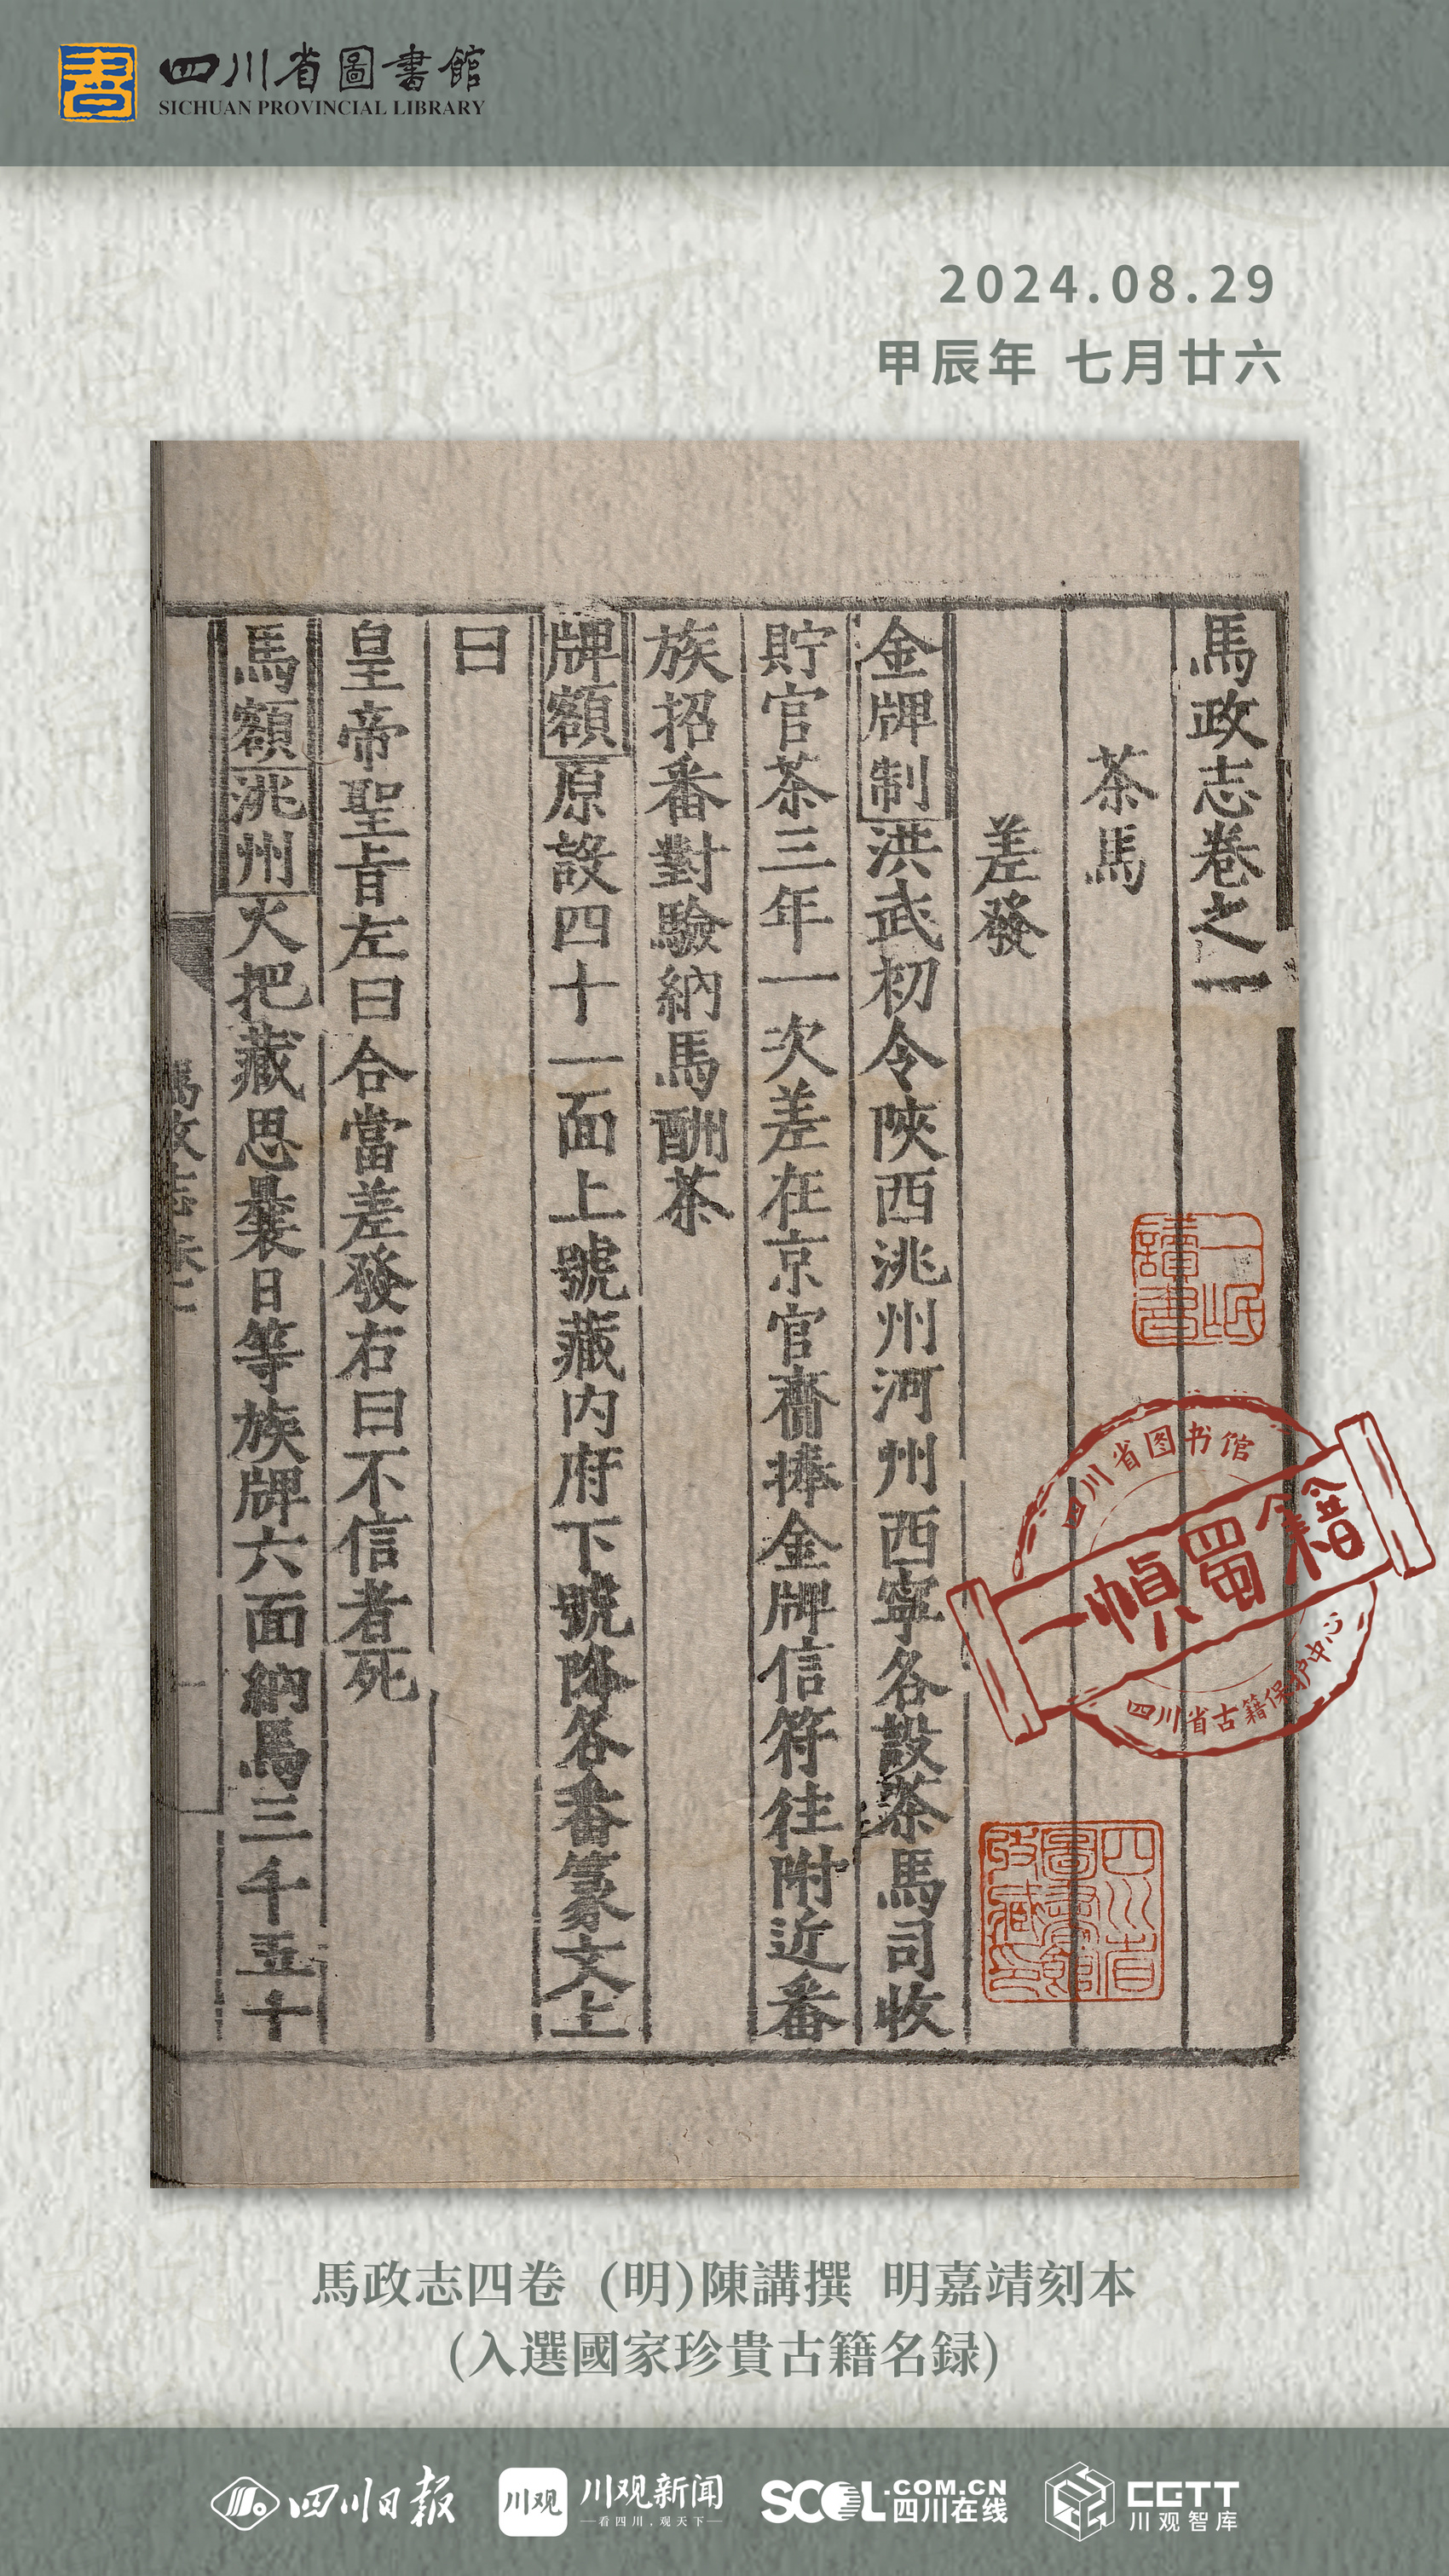 四川省圖書館
SICHUAN PROVINCIAL LIBRARY
2024.08.29
甲辰年 七月廿六
馬政志卷之一
茶馬
差發
金牌制洪武初令陝西洮州河州西寧各設茶馬司收
貯官茶三年一次差在京官齎捧金牌信符往附近番
族招番對驗納馬酬茶
牌額原設四十一面上號藏內府下號降各番篆文上
曰
皇帝聖旨左曰合當差發右曰不信者死
馬額洮州火把藏思曩日等族牌六面納馬三千五十
馬政志卷一
一
四川省图书馆
一幀蜀籍
四川省古籍保护中心
四川省圖書館收藏印
馬政志四卷 (明)陳講撰 明嘉靖刻本
(入選國家珍貴古籍名録)
四川日报
川观
川观新闻
看四川,观天下
SCOL.COM.CN
四川在线
CGTT
川观智库